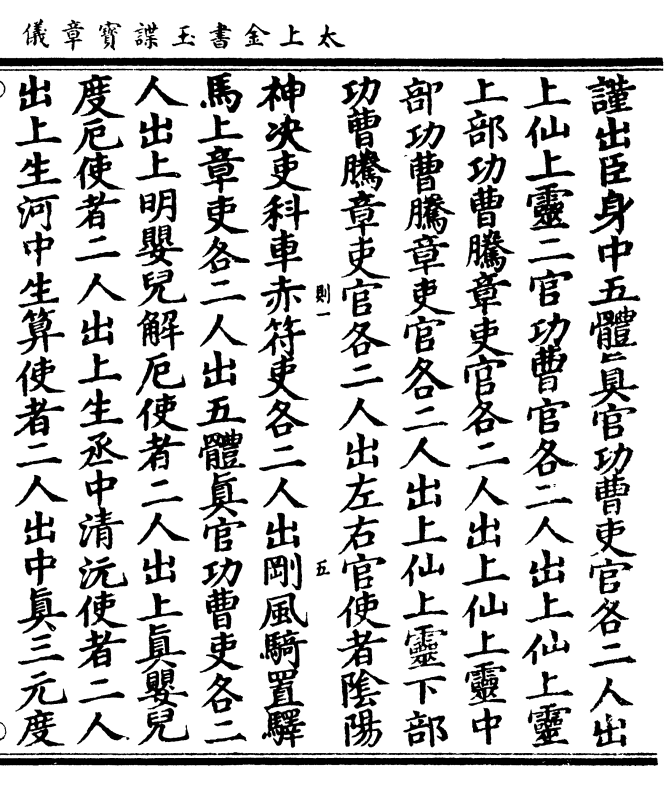 太上金書玉諜寶章儀
謹出臣身中五體眞官功曹吏官各二人出
上仙上靈二官功曹官各二人出上仙上靈
上部功曹騰章吏官各二人出上仙上靈中
部功曹騰章吏官各二人出上仙上靈下部
功曹騰章吏官各二人出左右官使者陰陽
則一
五
神决吏科車赤符吏各二人出剛風騎置驛
馬上章吏各二人出五體眞官功曹吏各二
人出上明嬰兒解厄使者二人出上眞嬰兒
度厄使者二人出上生丞中清沅使者二人
出上生河中生算使者二人出中眞三元度